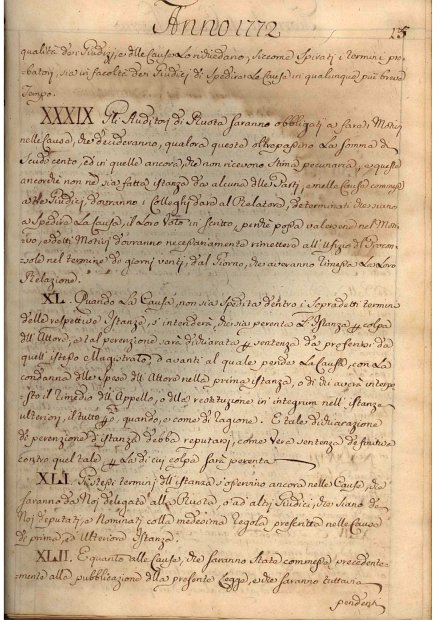 Anno 1772
15
qualità dei Giudizj, e delle Cause Lo richiedano, siccome spirati i termini pro-
batorj, sia in facoltà dei Giudici di Spedire La Causa in qualunque più breve
Tempo.
XXXIX Gli Auditori di Ruota saranno obbligati a fare i Motivi
nelle Cause, che decideranno, qualora queste oltrepassino La somma di
Scudi cento, ed in quelle ancora, che non ricevono Stima pecuniaria, e questo
ancorchè non ne sia fatta istanza da alcuna delle Parti, e nelle Cause commesse
a tre Giudici dovranno i Colleghi dare al Relatore, determinati che siano
a Spedire La Causa, il Loro Voto in scritto, perchè possa valersene nel Moti-
vo, e detti Motivi dovranno necessariamente rimettersi all'Ufizio del Procon-
solo nel termine di giorni venti, dal Giorno, che averanno rimessa La Loro
Relazione.
XL. Quando La Causa, non sia Spedita dentro i Sopradetti termini
delle respettive Istanze, s'intenderà, che sia perenta L'Istanza per colpa
dell'Attore, e tal perenzione sarà dichiarata per sentenza da proferirsi da
quell'istesso Magistrato, davanti al quale pende La Causa, con La
condanna delle Spese dell'Attore nella prima istanza, o di chi averà interpo-
sto il rimedio dell'Appello, o della restituzione in integrum nell'istanze
ulteriori, il tutto però, quando, e come di ragione. E tale dichiarazione
di perenzione d'istanza debba reputarsi, come vera sentenza definitiva
contro quel tale per La di cui colpa sarà perenta
XLI. Gl'istessi termini dell'istanza s'osservino ancora nelle Cause, che
saranno da Noi delegate alla Ruota, o ad altri Giudici, che siano da
Noi deputati, e Nominati colla medesima regola prescritta nelle Cause
di prima, ed Ulteriore Istanza.
XLII. E quanto alle Cause, che saranno State commesse precedente-
mente alla pubblicazione della presente Legge, e che saranno tuttavia
pendenti